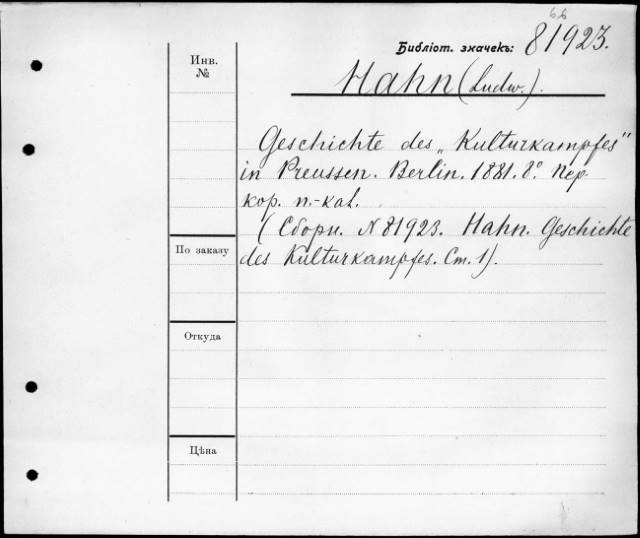 66
Библіот. значекъ: 81923.
Инв.
№
Hahn (Ludw.).
Geschichte des „Kulturkampfes"
in Preussen. Berlin. 1881. 8° пер
кор. п.-каl.
(Сборн. N 81923. Hahn. Geschichte
По заказу
des Kulturkampfes. Ст. 1).
Откуда
Цѣна